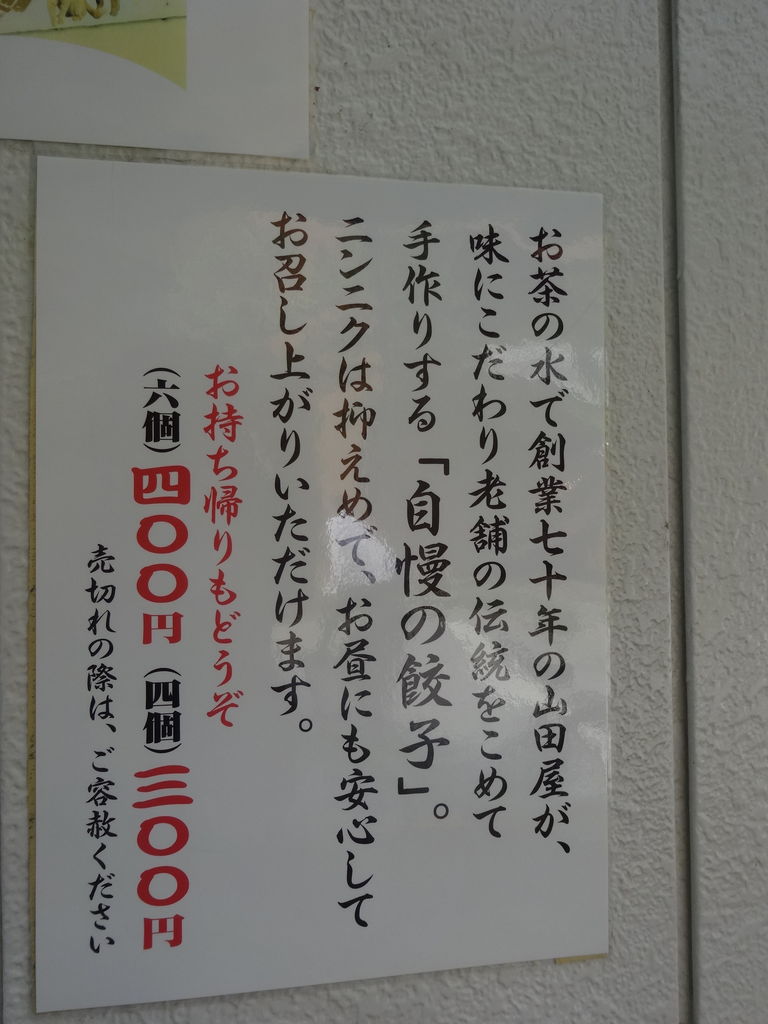 お茶の水で創業七十年の山田屋が、
味にこだわり老舗の伝統をこめて
手作りする「自慢の餃子」。
ニンニクは抑えめで、お昼にも安心して
お召し上がりいただけます。
お持ち帰りもどうぞ
（六個）四〇〇円（四個）三〇〇円
売切れの際は、ご容赦ください